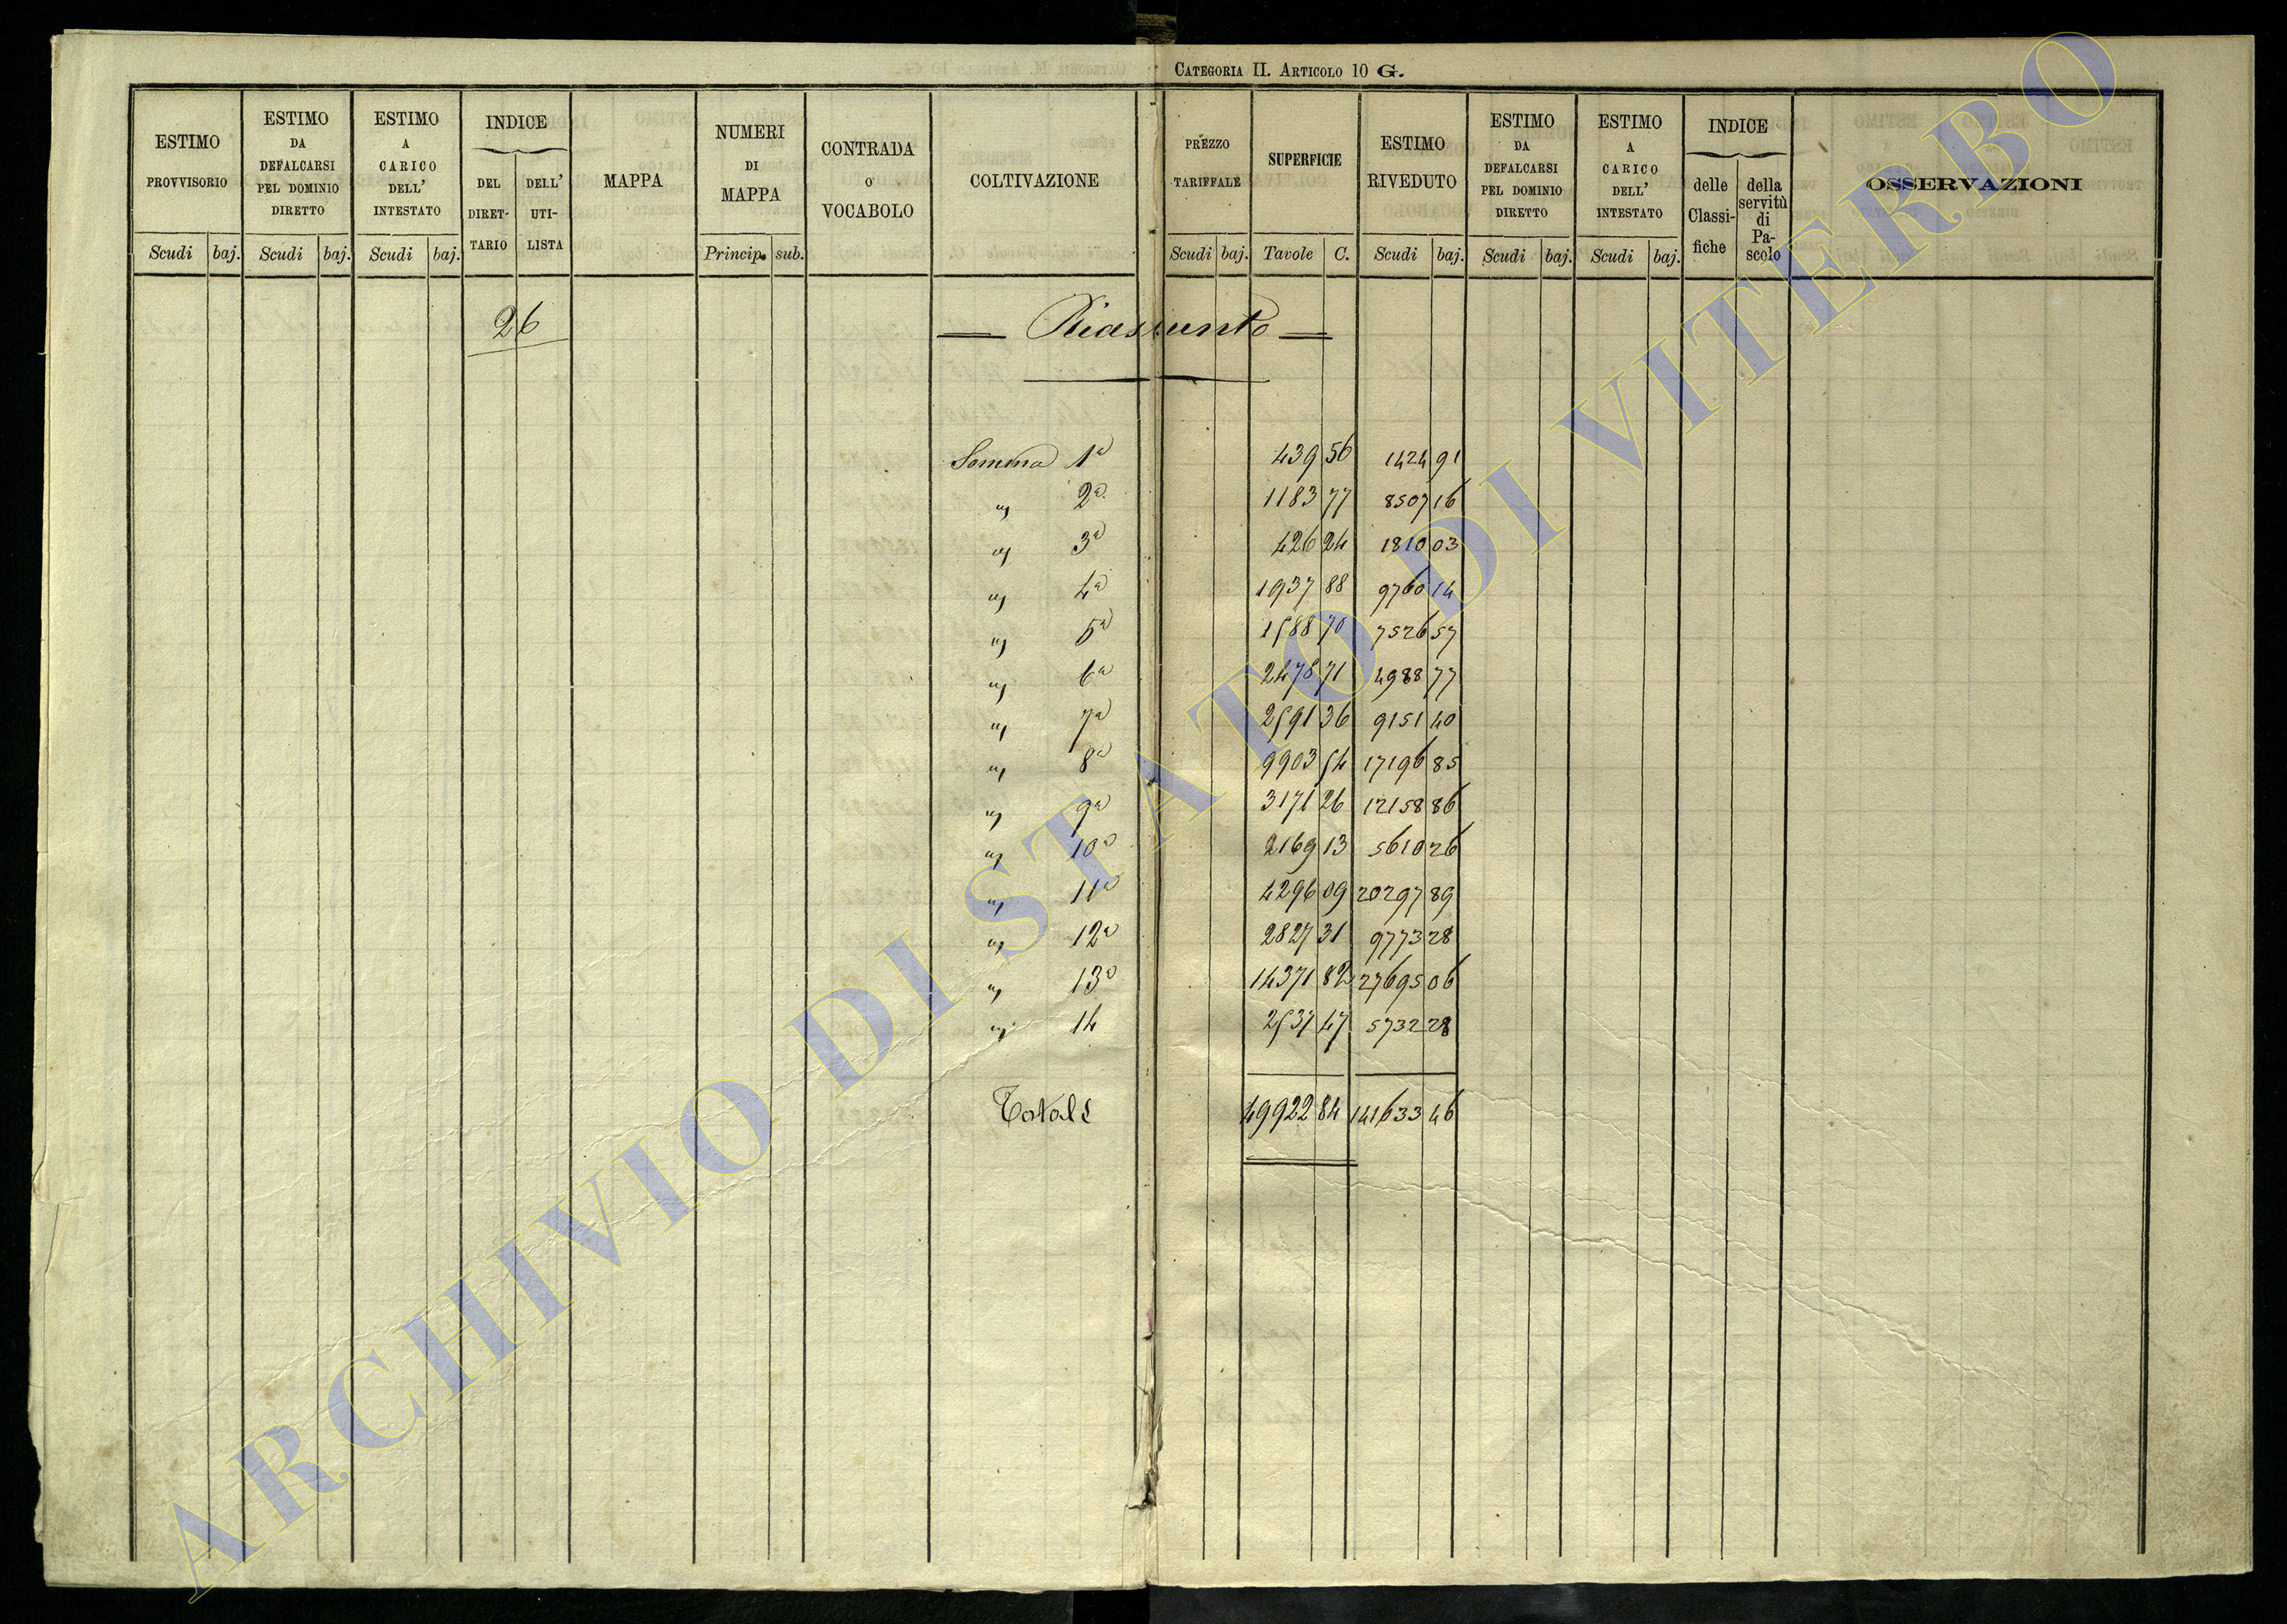 CATEGORIA II. ARTICOLO 10 G.
ESTIMO
PROVVISORIO
Scudi baj.
ESTIMO
DA
DEFALCARSI
PEL DOMINIO
DIRETTO
Scudi baj.
ESTIMO
A
CARICO
DELL'
INTESTATO
Scudi baj.
INDICE
DEL
DIRET-
TARIO
DELL'
UTI-
LISTA
MAPPA
NUMERI
DI
MAPPA
Princip. sub.
CONTRADA
O
VOCABOLO
COLTIVAZIONE
PREZZO
TARIFFALE
Scudi baj.
SUPERFICIE
Tavole C.
ESTIMO
RIVEDUTO
Scudi baj.
ESTIMO
DA
DEFALCARSI
PEL DOMINIO
DIRETTO
Scudi baj.
ESTIMO
A
CARICO
DELL'
INTESTATO
Scudi baj.
INDICE
delle
Classi-
fiche
della
servitù
di
Pa-
scolo
OSSERVAZIONI
26 — Riassunto —
Somma 1a 439 56 1424 91
" 2a 1183 77 8507 16
" 3a 426 24 1810 03
" 4a 1937 88 9760 14
" 5a 1588 70 7526 57
" 6a 2478 71 4988 77
" 7a 2591 36 9151 40
" 8a 9903 54 17196 85
" 9a 3171 26 12158 86
" 10a 2169 13 5610 26
" 11a 4296 09 20297 89
" 12a 2827 31 9773 28
" 13a 14371 82 27695 06
" 14 2537 47 5732 28
Totale 49922 84 141633 46
ARCHIVIO DI STATO DI VITERBO